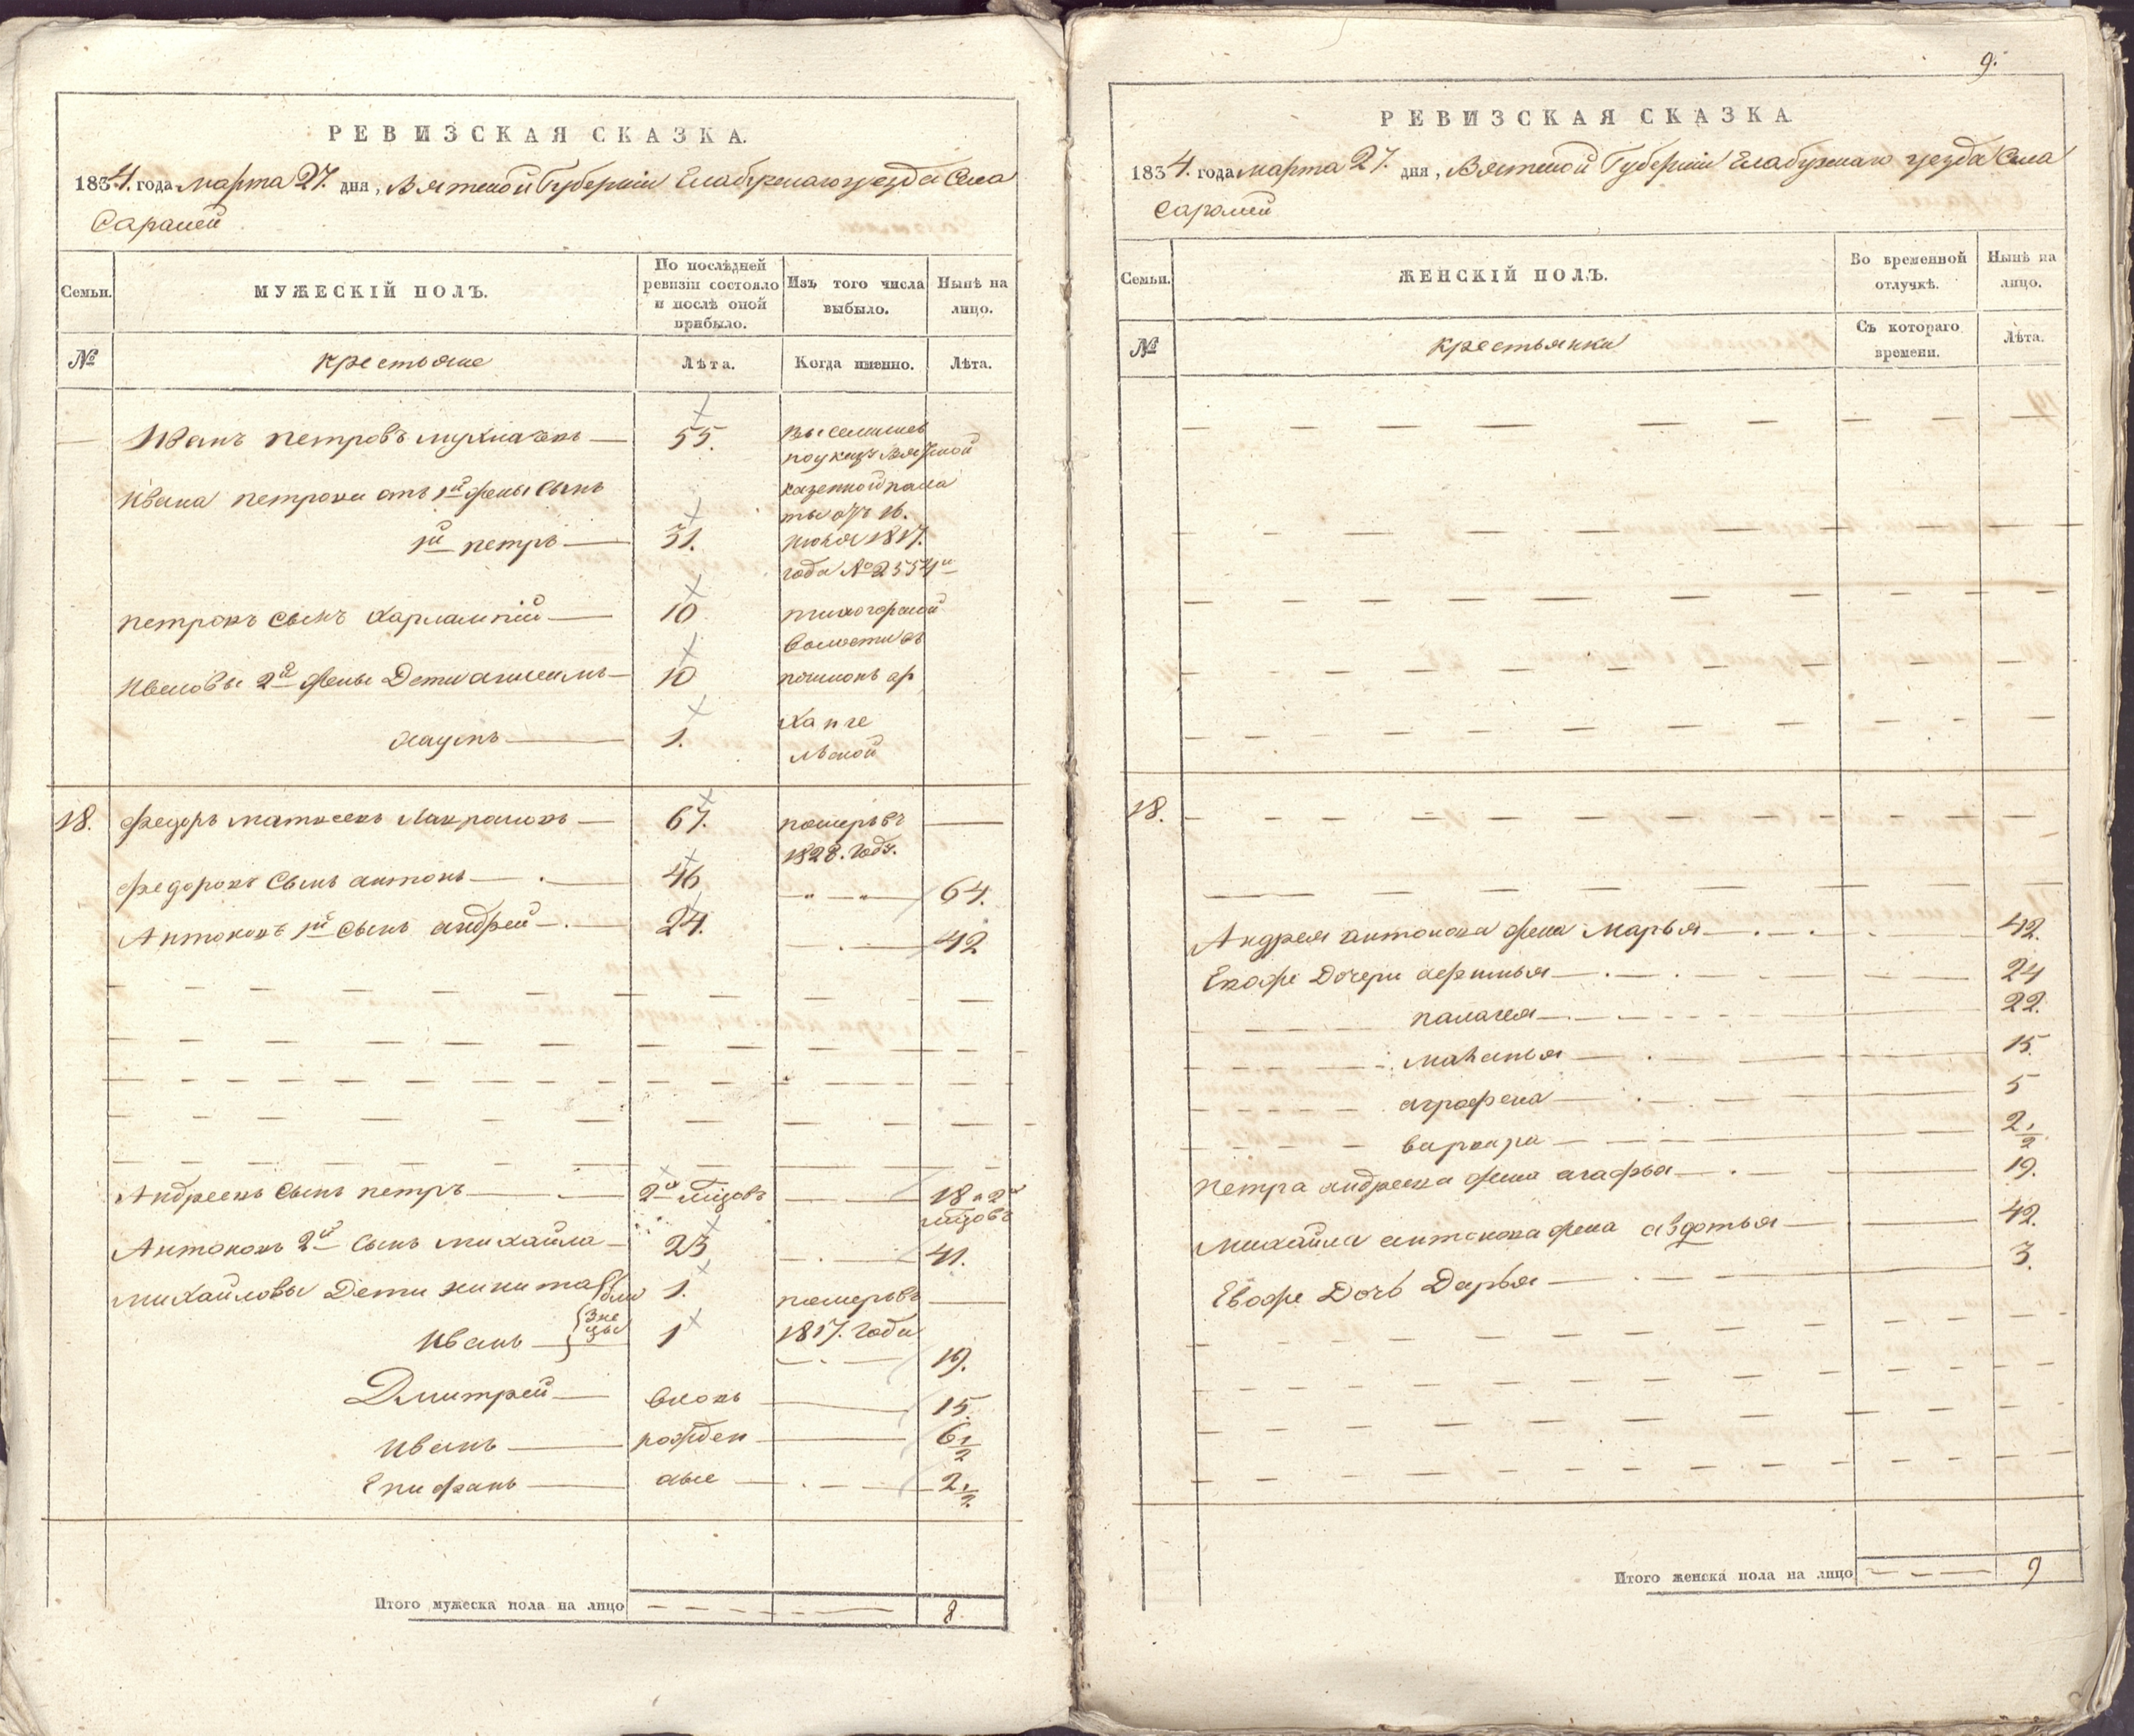 РЕВИЗСКАЯ СКАЗКА.
1834. года марта 27. дня, Вятской Губернiи Елабужскаго уезда Села
Саралей
Семьи.
МУЖЕСКIЙ ПОЛЪ.
По послѣдней ревизiи состояло и послѣ оной прибыло.
Изъ того числа выбыло.
Нынѣ на лицо.
№
крестьяне
Лѣта.
Когда именно.
Лѣта.
Иванъ петровъ 55. выселились
по указу Вятской
Ивана петрова отъ 1й жены сынъ казенной пала
ты отъ 16.
1й петръ 31. июня 1817.
года №
петровъ сынъ харлампiй 10
волости въ
Ивановы 2й жены Дети 10 починокъ ар
хангельской
1.
18. федоръ матвеевъ 67. померъ въ
1828. году.
федоровъ сынъ антонъ 46 64.
Антоновъ 1й сынъ андрей 24. 42
Андреевъ сынъ петръ 18
Антоновъ 2й сынъ михайла 23 41.
михайловы Дети никита близнецы 1. померъ въ
Иванъ 1 1817. года
19.
Дмитрей вновь 15.
Иванъ рожден 6 1/2
Епифанъ ные 2 1/2
Итого мужеска пола на лицо 8.
9.
РЕВИЗСКАЯ СКАЗКА
1834. года марта 27. дня, Вятской Губернiи Елабужскаго уезда Села
Саралей
Семьи.
ЖЕНСКIЙ ПОЛЪ.
Во временной отлучкѣ.
Нынѣ на лицо.
№
крестьянки
Съ котораго времени.
Лѣта.
18.
Андрея антонова жена Марья 42.
Евоже Дочери афимья 24
палагея 22.
маланья 15.
аграфена 5
варвара 2 1/2
Петра андреева жена агафья 19.
Михайла антонова жена авдотья 42.
Евоже Дочь Дарья 3.
Итого женска пола на лицо 9